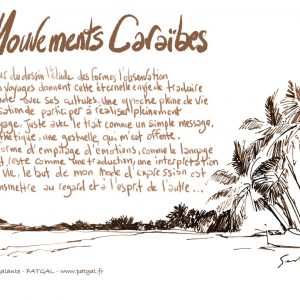 Mouvements Caraïbes
ur du dessin l'étude des formes l'observation
s voyages donnent cette éternelle envie de traduire
nde avec ses cultures. Une approche pleine de vie
sation de participer à réaliser pleinement
yage. Juste avec le trait comme un simple message,
thétique, une gestuelle qui m'est offerte.
forme d'empilage d'émotions, comme le langage
reste comme une traduction, une interprétation
vie. le but de mon mode d'expression est
nsmettre au regard et à l'esprit de l'autre...
galante - PATGAL - www.patgal.fr